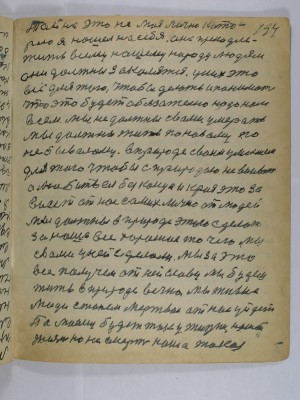 157
Тайна это не моя лично кото-
рую я нашел на себя, она принадле-
жить всему нашему народу людям
они должны за
всё для того, чтобы делать и понимать
что это будет обязательно надо нам
всем. Мы не должны с вами умирать
мы должны жить по новому
не бывалому. В природе своим умением
для того чтобы с природою не воевать
а любить ея до конца и края это за
висит от нас самих лично от людей
мы должны в природе этого сделать
за наше все хорошее то чего мы
с вами у ней сделаем. Мы за это
все получим от ней славу мы будем
жить в природе вечно, мы живые
люди станем мертвое от нас уйдет
По моему будет только жизнь
но не смерть наша такая